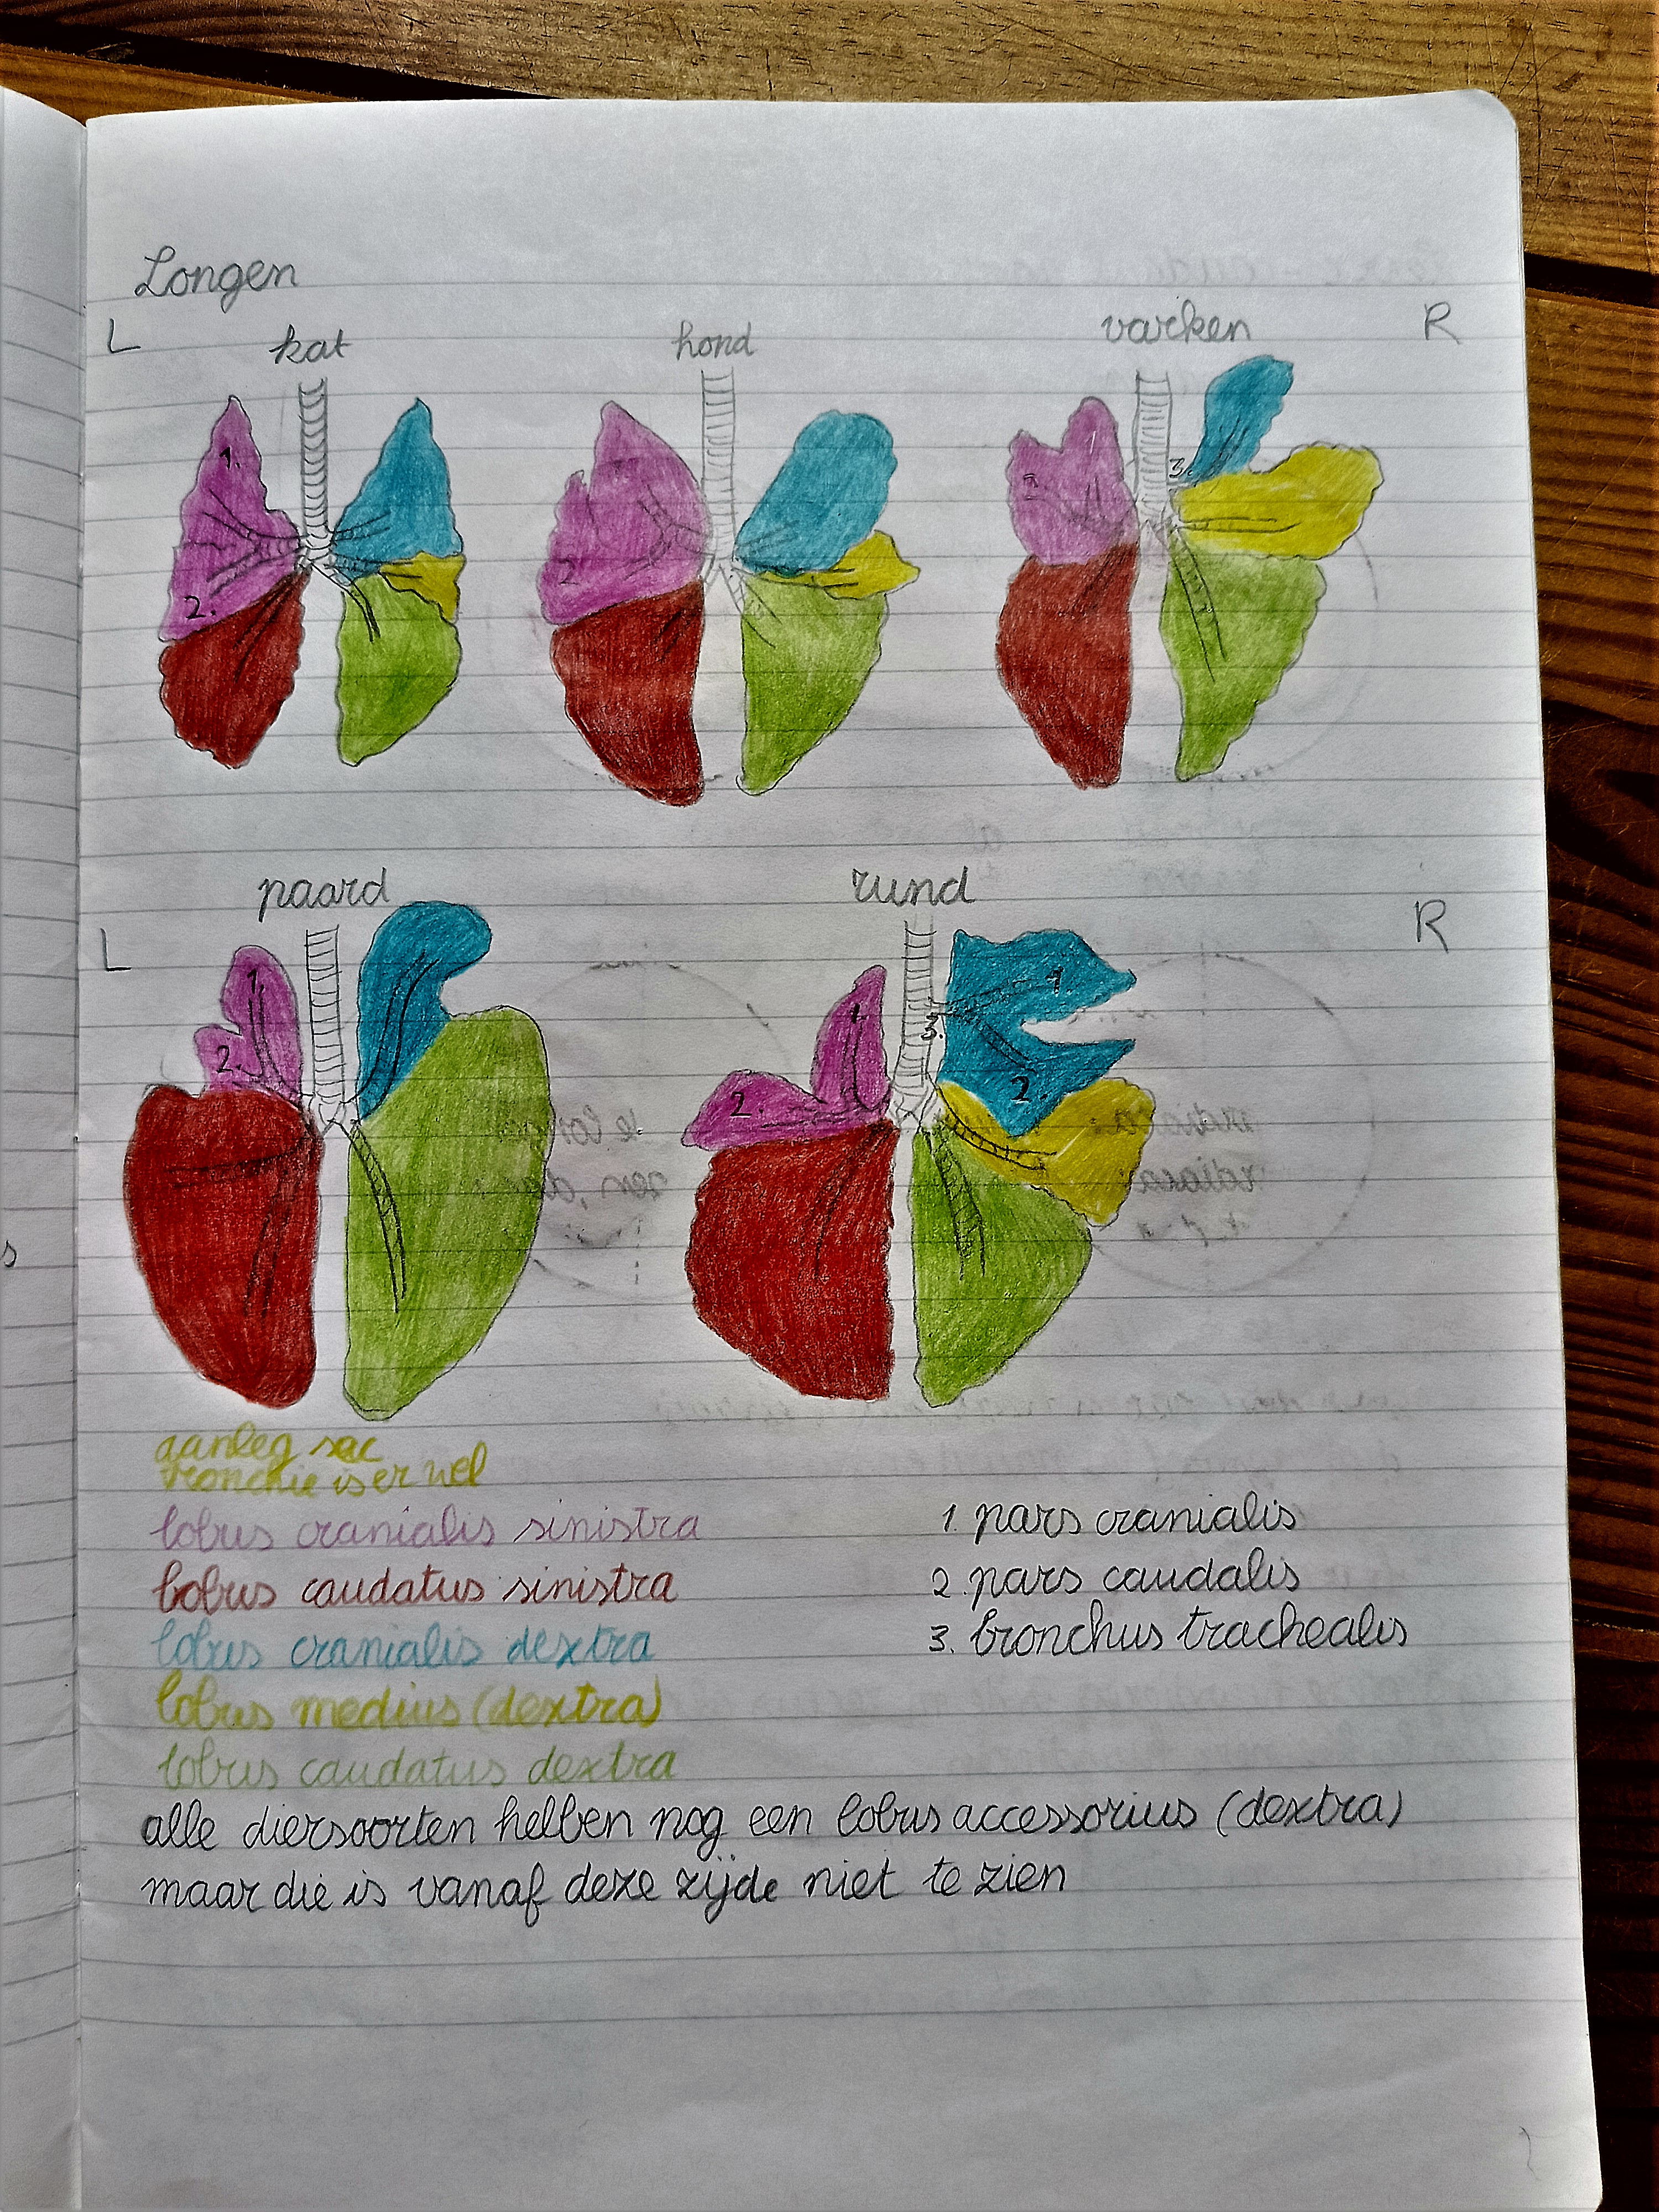 Longen
L kat hond varken R
1. 1 3.
2. 2 2
paard rund
L R
1. 1. 1
2. 2. 3. 2.
aanleg sac
bronchie is er wel
lobus cranialis sinistra
lobus caudatus sinistra
lobus cranialis dextra
lobus medius (dextra)
lobus caudatus dextra
1. pars cranialis
2. pars caudalis
3. bronchus trachealis
alle diersoorten hebben nog een lobus accessorius (dextra)
maar die is vanaf deze zijde niet te zien